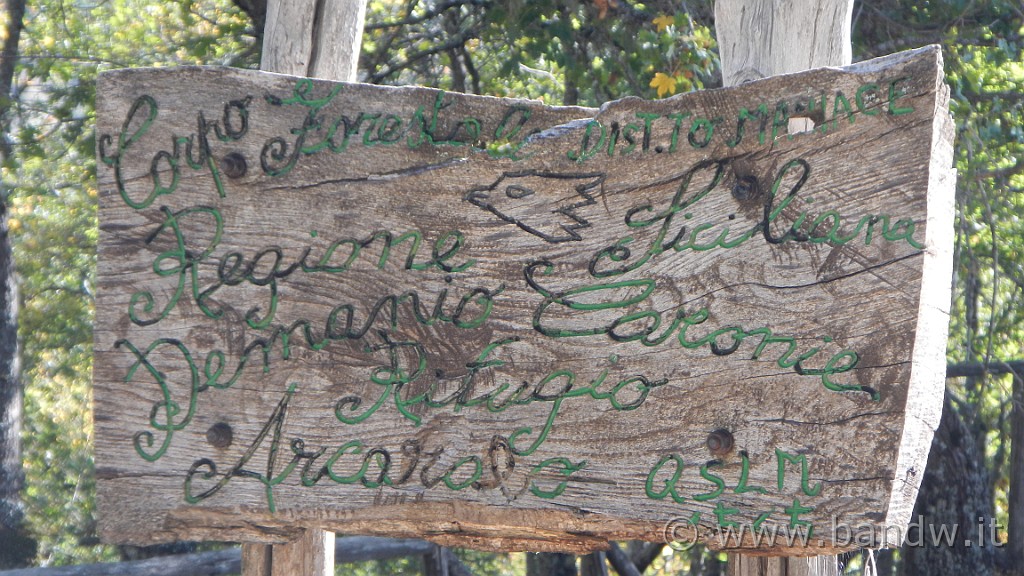 Corpo Forestale DIST.TO MANIACE
Regione Siciliana
Demanio Caronie
Rifugio
Arcarolo QSLM
© www.bandw.it